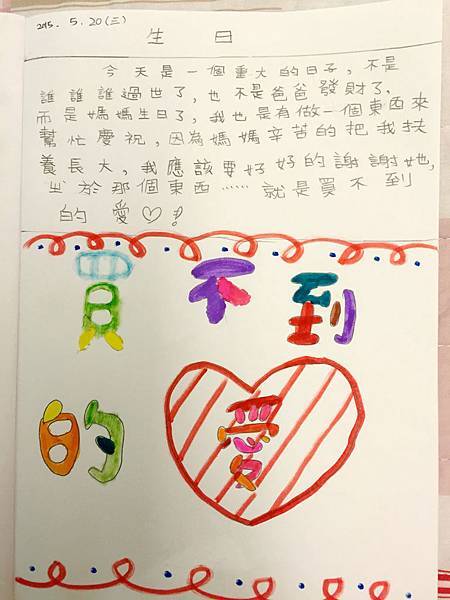 2015. 5. 20 (三)
生日
今天是一個重大的日子，不是
誰誰誰過世了，也不是爸爸發財了，
而是媽媽生日了，我也是有做一個東西來
幫忙慶祝，因為媽媽辛苦的把我扶
養長大，我應該要好好的謝謝她，
ㄓ於那個東西……就是買不到
的愛♡！
買不到
的愛